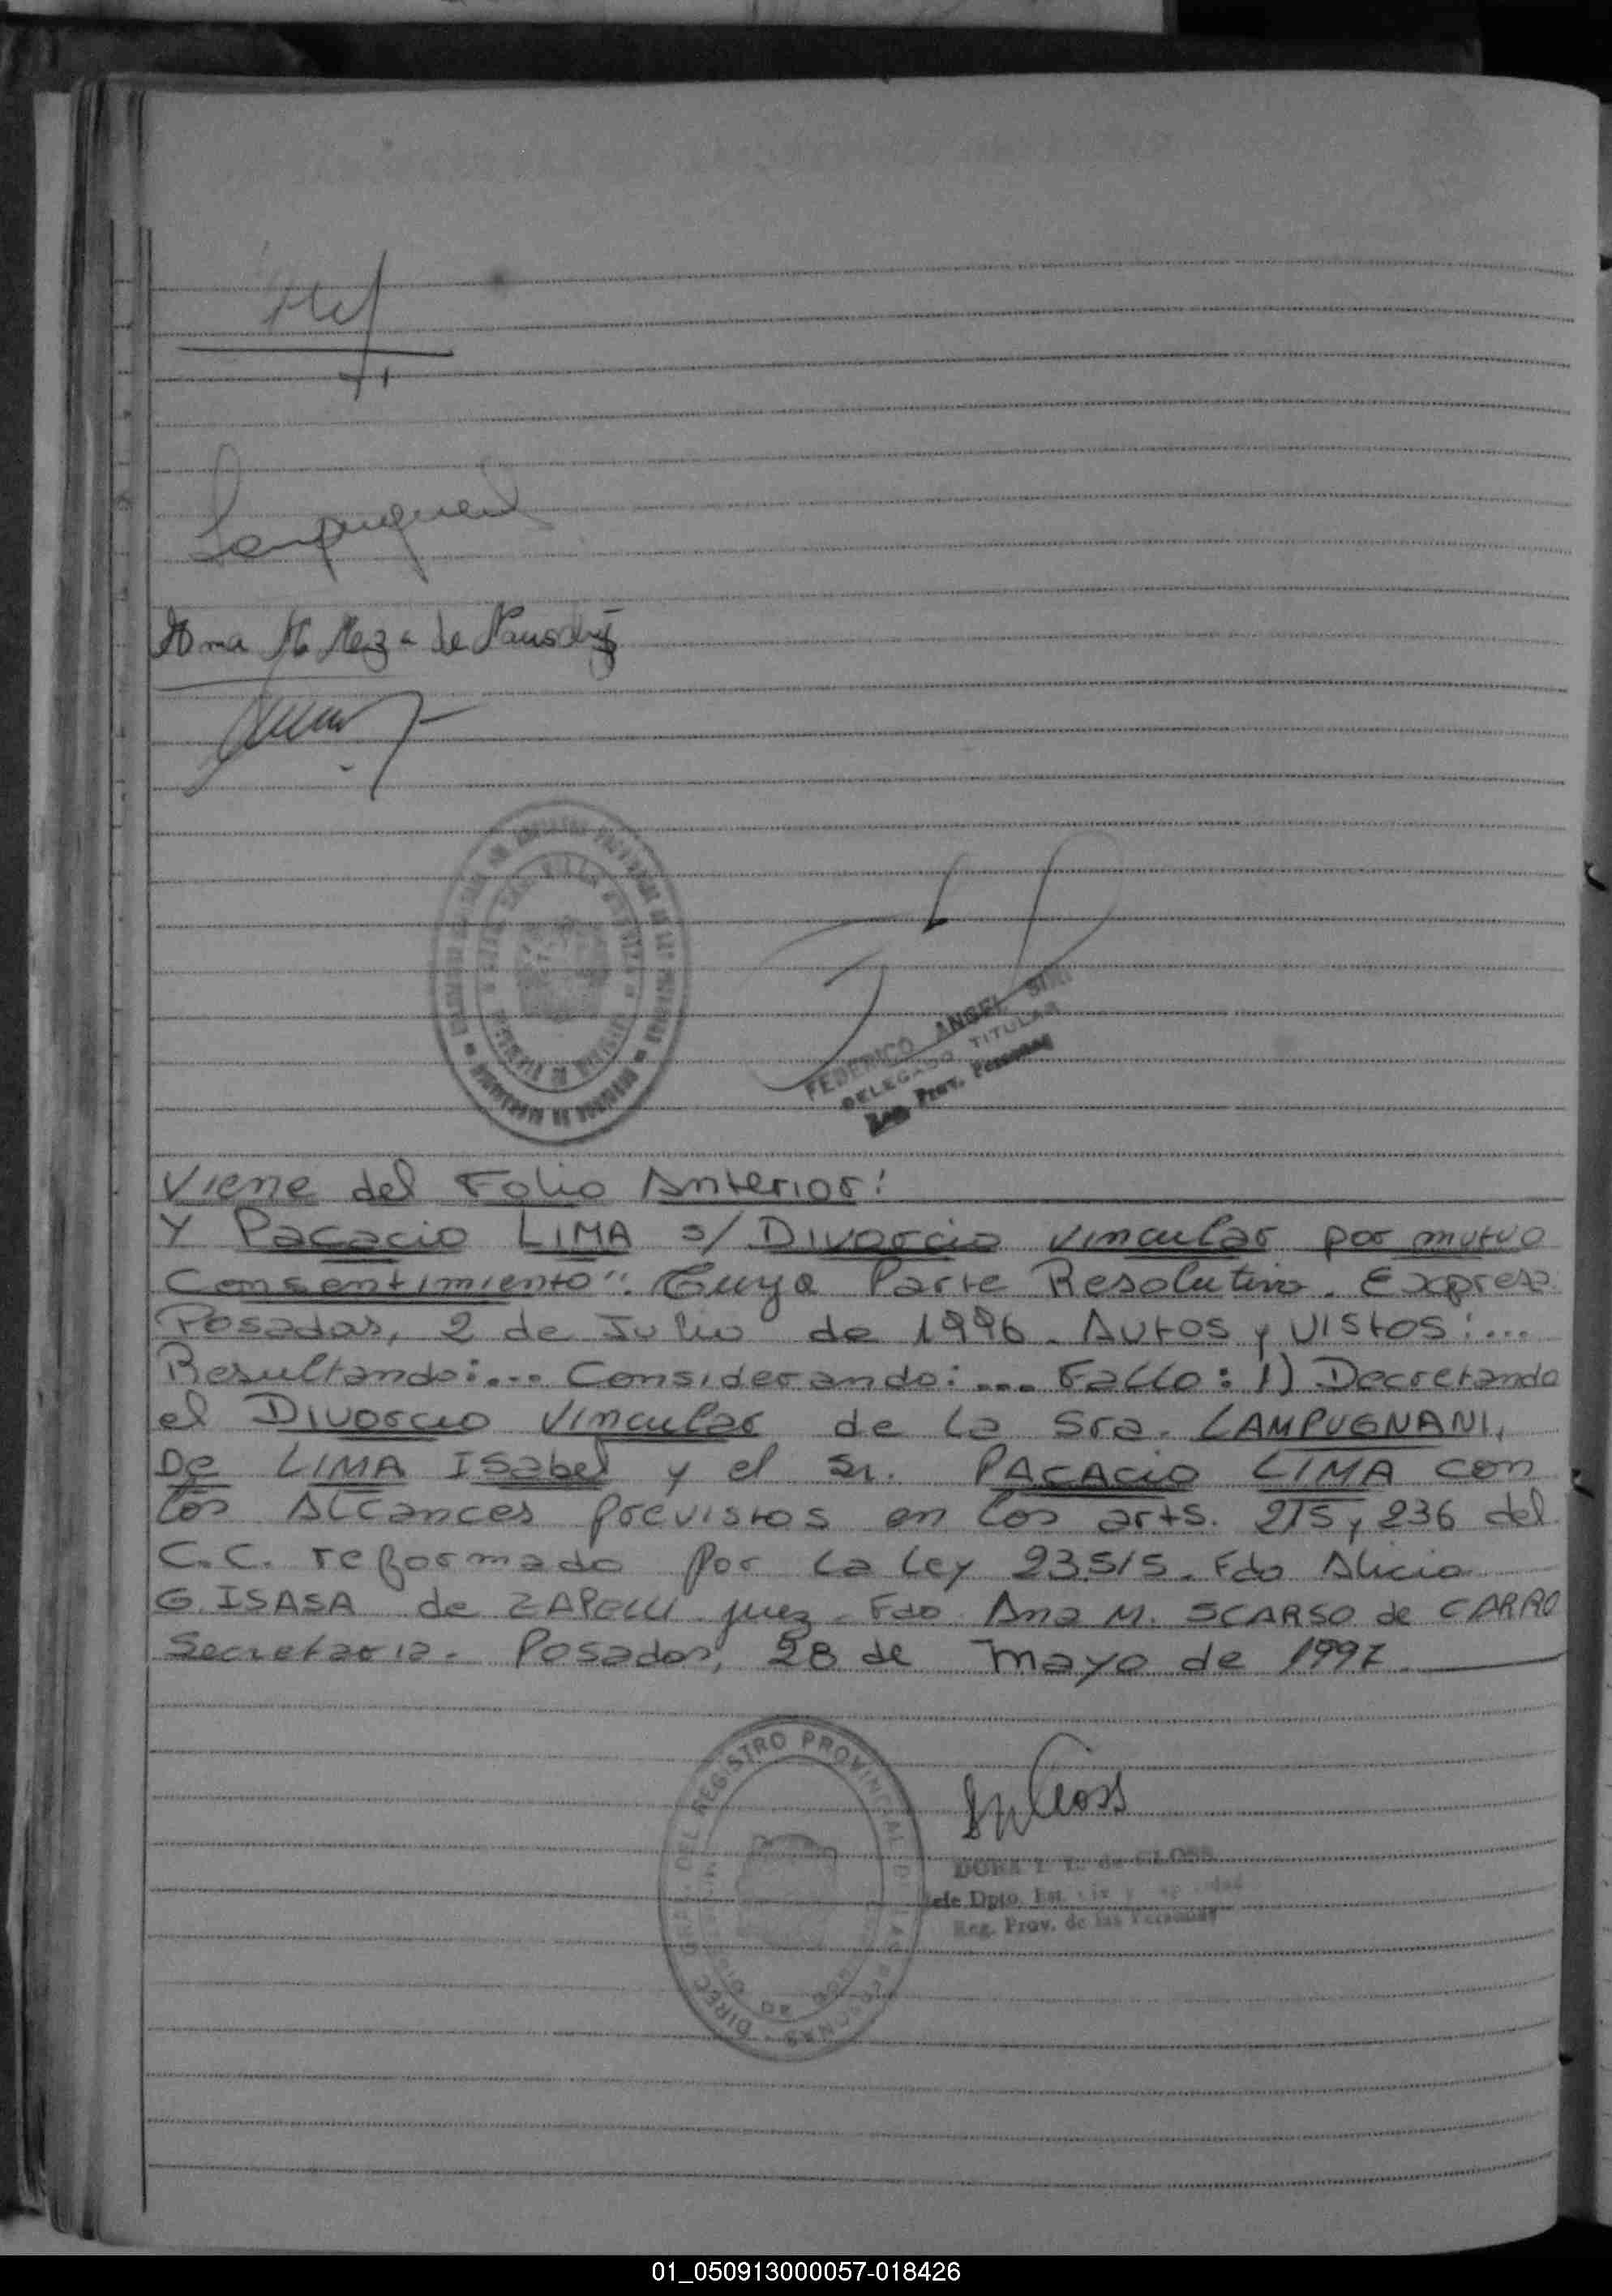 Ana M. Meza de
FEDERICO ANGEL
DELEGADO TITULAR
Reg. Prov. Personas
Viene del Folio Anterior:
Y Pacacio LIMA s/ Divorcio vincular por mutuo
Consentimiento". Cuya Parte Resolutiva. Expresa
Posadas, 2 de Julio de 1996. Autos y Vistos:...
Resultando:... Considerando:... Fallo: 1) Decretando
el Divorcio Vincular de la Sra. LAMPUGNANI,
De LIMA ISabel y el Sr. PACACIO LIMA con
los Alcances previstos en los arts. 215, 236 del
C.C. reformado por la Ley 23.515. Fdo Alicia
G. ISASA de ZAPELLI juez. Fdo. Ana M. SCARSO de CARRO
Secretaria. Posadas, 28 de mayo de 1997
DIREC GRAL. DEL REGISTRO PROVINCIAL DE LAS PERSONAS
DORA de GLOSS
Jefe Dpto. Est.
Reg. Prov. de las Personas
01_050913000057-018426